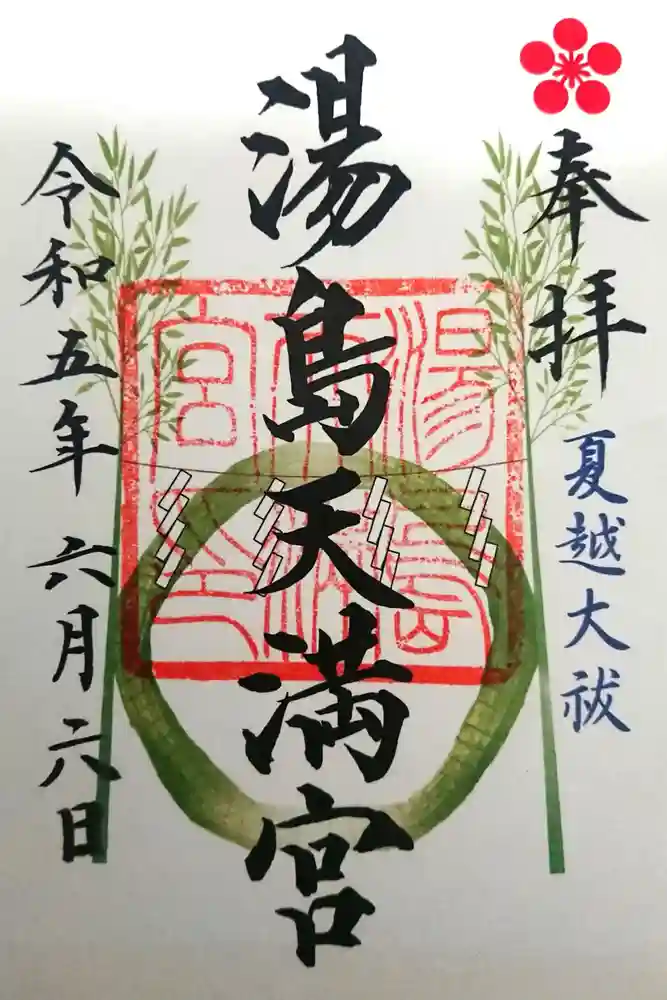 奉拝
夏越大祓
湯島天満宮
令和五年 六月六日
湯島天満宮印